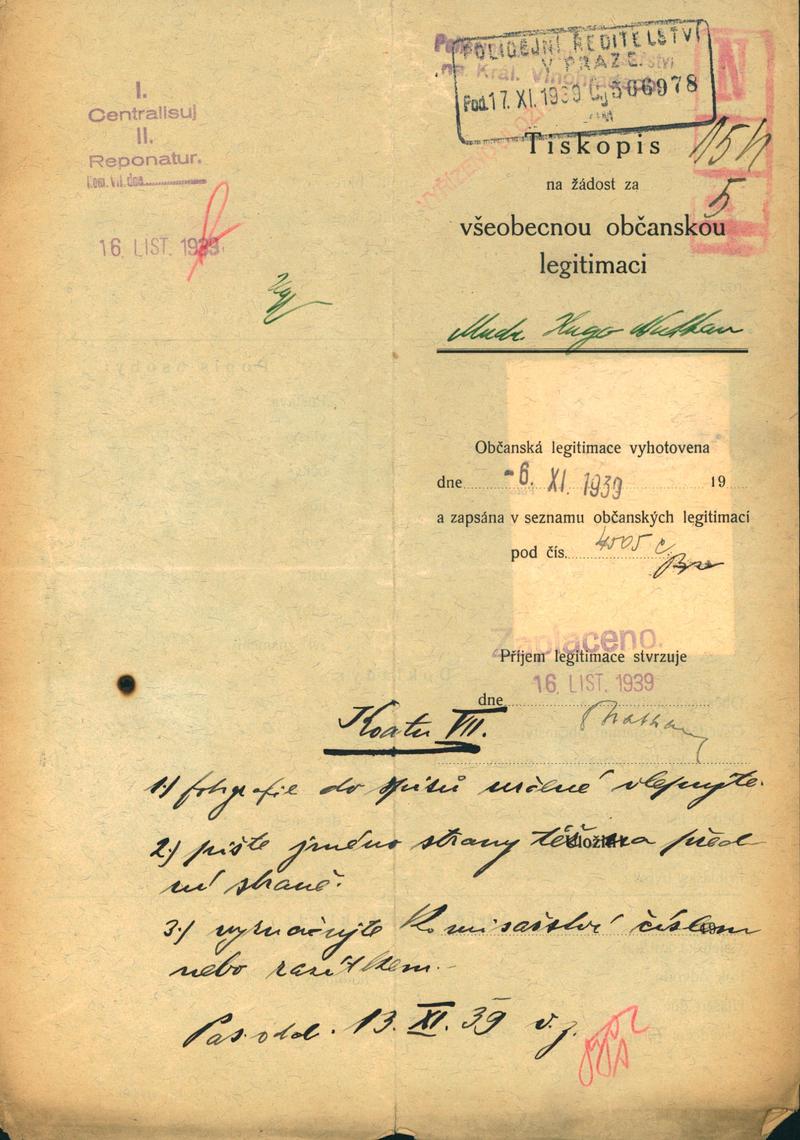 I.
Centralisuj
II.
Reponatur.
Kom. VII. dne
16. LIST. 1939
POLICEJNÍ ŘEDITELSTVÍ
V PRAZE
na Král. Vinohradech
Pod. 17. XI. 1939 Čj 566978
N
15 N
5
Tiskopis
na žádost za
všeobecnou občanskou
legitimaci
Mudr. Hugo Nathan
Občanská legitimace vyhotovena
dne -6. XI. 1939 19
a zapsána v seznamu občanských legitimací
pod čís. 4505 c
Zaplaceno.
Příjem legitimace stvrzuje
dne 16. LIST. 1939
Nathan
Koatu VII.
1.) fotografie do spisů určené vlepujte.
2.) pište jméno strany též na před-
ní straně.
3.) vyznačujte Komisařství číslem
nebo razítkem.-
Pas. odd. 13. XI. 39